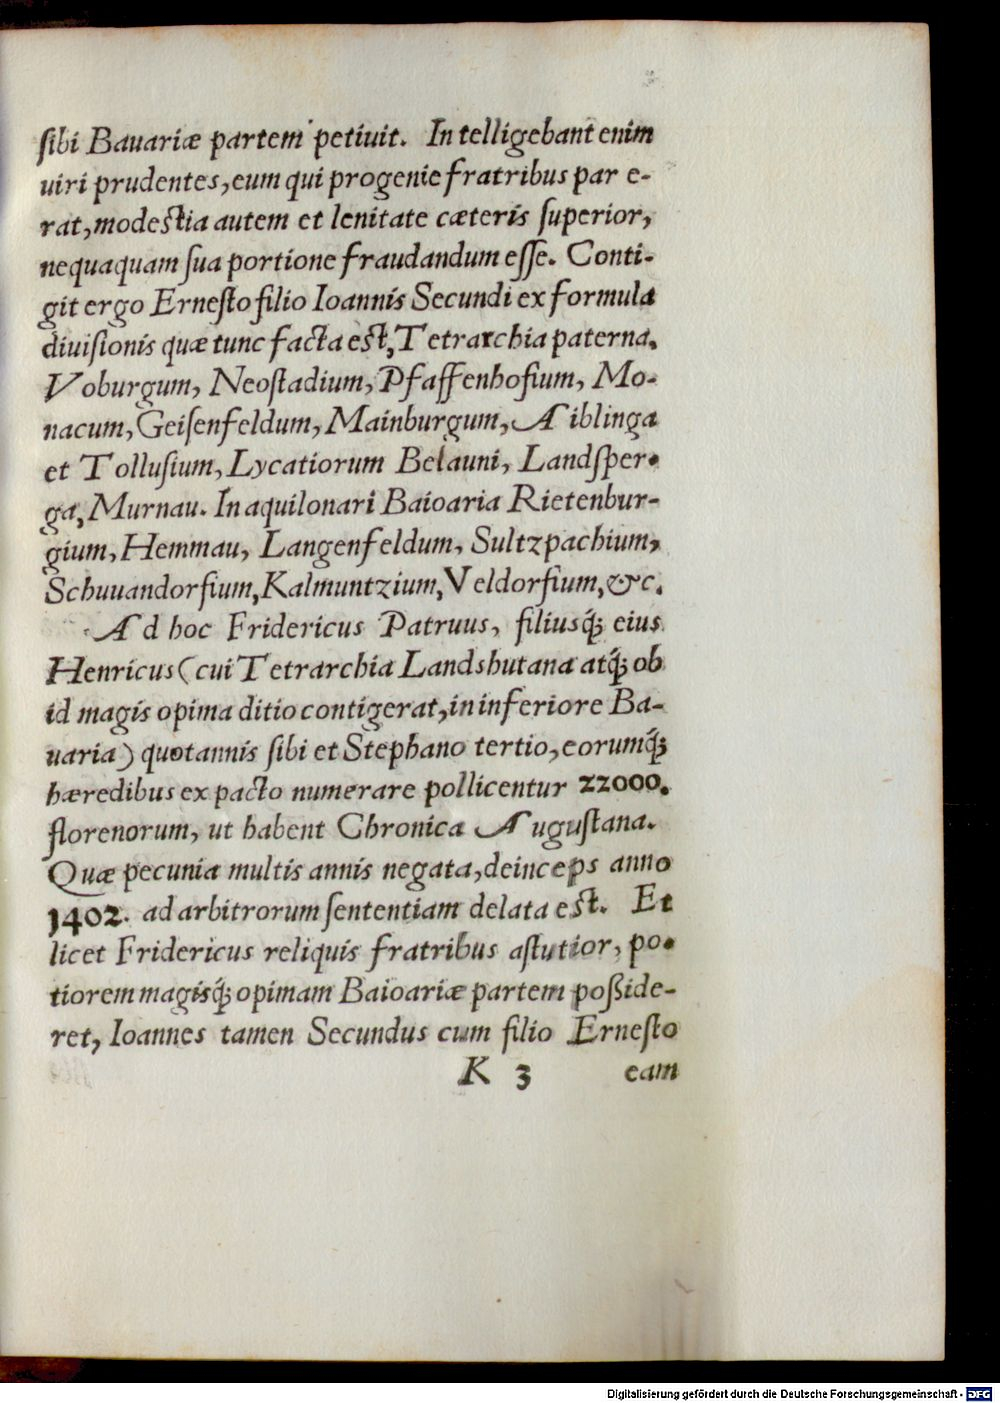 ſibi Bauariæ partem petiuit. Intelligebant enim
uiri prudentes, eum qui progenie fratribus par e-
rat, modeſtia autem et lenitate cæteris ſuperior,
nequaquam ſua portione fraudandum eſſe. Conti-
git ergo Erneſto filio Ioannis Secundi ex formula
diuiſionis quæ tunc facta eſt, Tetrarchia paterna.
Voburgum, Neoſtadium, Pfaffenhofium, Mo-
nacum, Geiſenfeldum, Mainburgum, Aiblinga
et Tolluſium, Lycatiorum Belauni, Landſper-
ga, Murnau. In aquilonari Baioaria Rietenbur-
gium, Hemmau, Langenfeldum, Sultzpachium,
Schuuandorfium, Kalmuntzium, Veldorfium, &c.
Ad hoc Fridericus Patruus, filiusq́; eius
Henricus (cui Tetrarchia Landshutana atq́; ob
id magis opima ditio contigerat, in inferiore Ba-
uaria) quotannis ſibi et Stephano tertio, eorumq́;
hæredibus ex pacto numerare pollicentur 22000.
florenorum, ut habent Chronica Auguſtana.
Quæ pecunia multis annis negata, deinceps anno
1402. ad arbitrorum ſententiam delata eſt. Et
licet Fridericus reliquis fratribus aſtutior, po-
tiorem magisq́; opimam Baioariæ partem poßide-
ret, Ioannes tamen Secundus cum filio Erneſto
K 3 eam
Digitalisierung gefördert durch die Deutsche Forschungsgemeinschaft - DFG